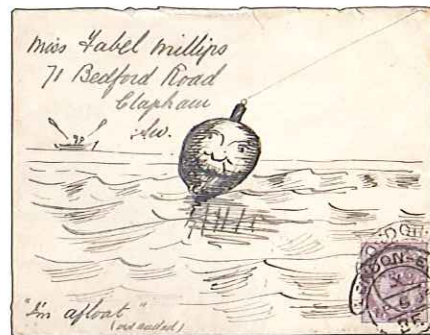 Miss Mabel Millips
71 Bedford Road
Clapham
S.W.
"I'm afloat"
LONDON